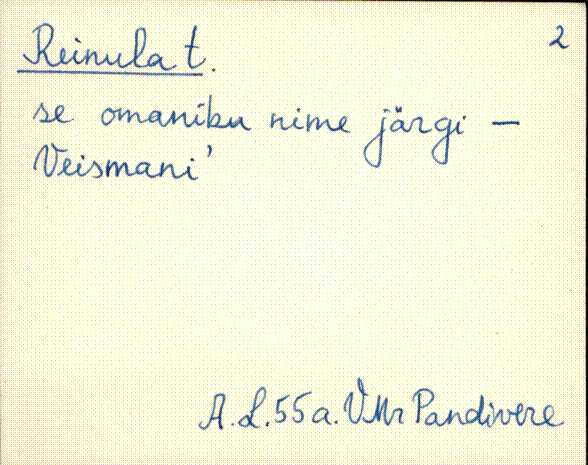 Reinula t. 2
se omaniku nime järgi –
Veismani'
A.L. 55a. VMr Pandivere